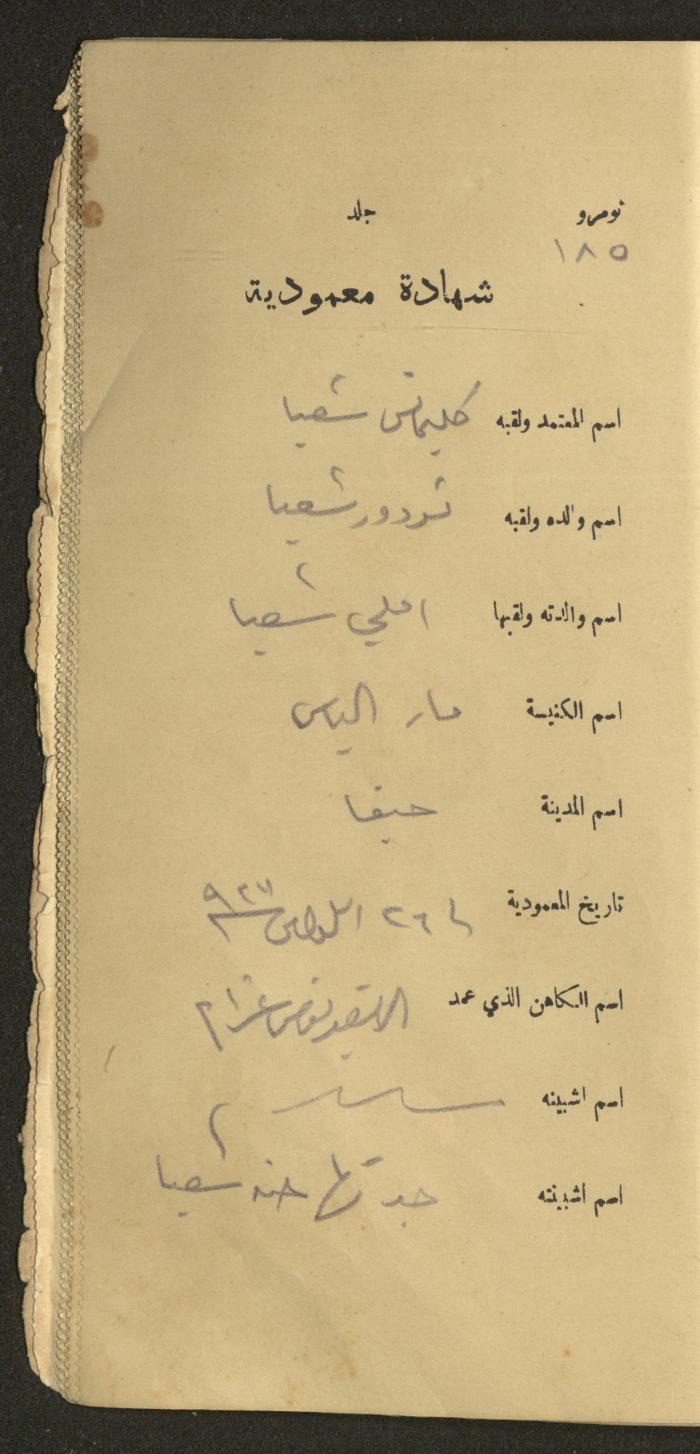 نومرو جلد
١٨٥
شهادة معمودية
اسم المعتمد ولقبه كليمانس شعيا
اسم والده ولقبه تودور شعيا
اسم والدته ولقبها املي شعيا
اسم الكنيسة مار الياس
اسم المدينة حيفا
تاريخ المعمودية ٢٦ ٩٢٧
اسم الكاهن الذي عمد
اسم اشبينه
اسم اشبينته جدتها حنه شعيا